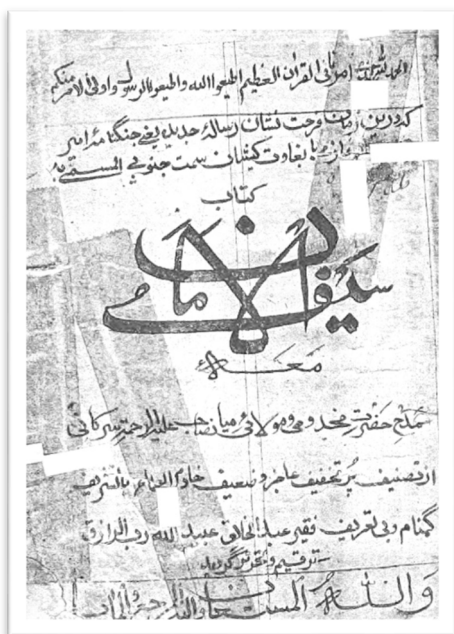 الحمد لله امرنا فی القرآن العظیم اطیعوا الله واطیعوا الرسول واولی الامر منکم
که درین زمان فرحت نشان رسالهٔ جدید یعنی جنگنامهٔ امیر
با بغاوت کیشان سمت جنوبی المسمّی به
کتاب
سیف الامان
معهٔ
مدح حضرت مخدومی و مولائی میانصاحب علیه الرحمة سرکانی
از تصنیف پُر تخفیف عاجز و ضعیف خادم العلماء
گمنام و بی تعریف فقیر عبدالخالق عبید الله رب الرازق
ترقیم و تحریر گردید
والله المستعان